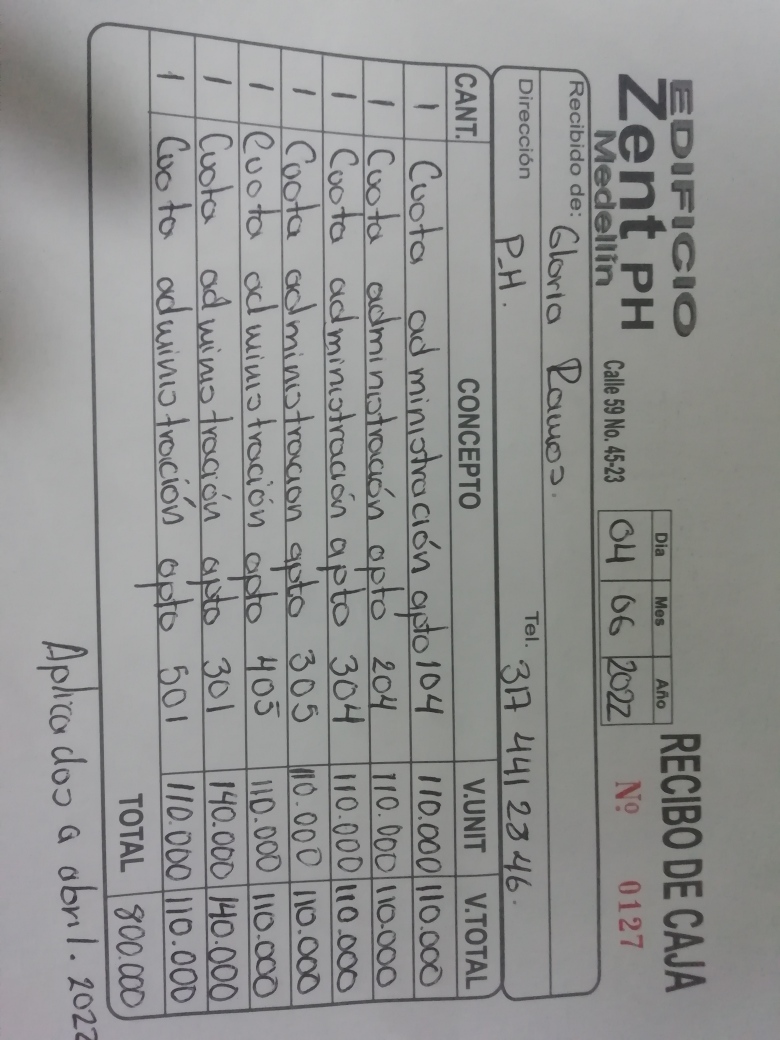 EDIFICIO
Zent PH
Medellín
Calle 59 No. 45-23
Dia Mes Año
04 06 2022
RECIBO DE CAJA
Nº 0127
Recibido de: Gloria Ramos.
Dirección P-H. Tel. 317 441 2846.
CANT. CONCEPTO V.UNIT V.TOTAL
1 Cuota administración apto 104 110.000 110.000
1 Cuota administración apto 204 110.000 110.000
1 Cuota administración apto 304 110.000 110.000
1 Cuota administracion apto 305 110.000 110.000
1 Cuota administración apto 405 110.000 110.000
1 Cuota administración apto 301 140.000 140.000
1 Cuota administración apto 501 110.000 110.000
TOTAL 800.000
Aplicados a abril. 2022